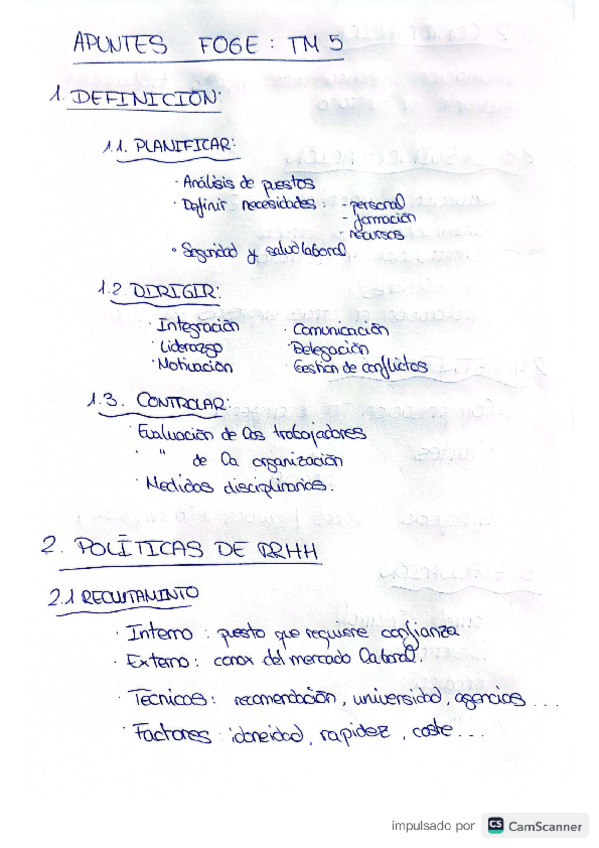 APUNTES FOGE: TM 5
1. DEFINICIÓN:
1.1. PLANIFICAR:
· Análisis de puestos
· Definir necesidades: - personal
- formación
- recursos
· Seguridad y salud laboral
1.2 DIRIGIR:
· Integración · Comunicación
· Liderazgo · Delegación
· Motivación · Gestión de conflictos
1.3. CONTROLAR:
· Evaluación de los trabajadores
· " de la organización
· Medidas disciplinarias.
2. POLÍTICAS DE RRHH
2.1 RECLUTAMINTO
· Interno: puesto que requiere confianza
· Externo: conox del mercado laboral.
· Técnicas: recomendación, universidad, agencias ...
· Factores: idoneidad, rapidez, coste...
impulsado por CS CamScanner